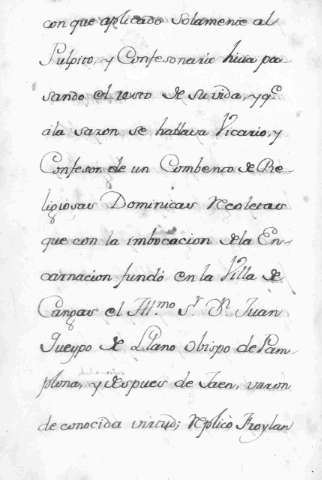 con que aplicado Solamente al
Pulpito, y Confesonario hiva pa-
sando el resto de su vida, y q.e
a la sazon se hallava Vicario, y
Confesor de un Combento de Re-
ligiosas Dominicas Recoletas
que con la imbocacion de la En-
carnacion fundó en la Villa de
Cangas el Ill.mo S.r D.n Juan
Queypo de Llano Obispo de Pam-
plona, y despues de Jaen, varon
de conocida virtud; Replicò Froylan